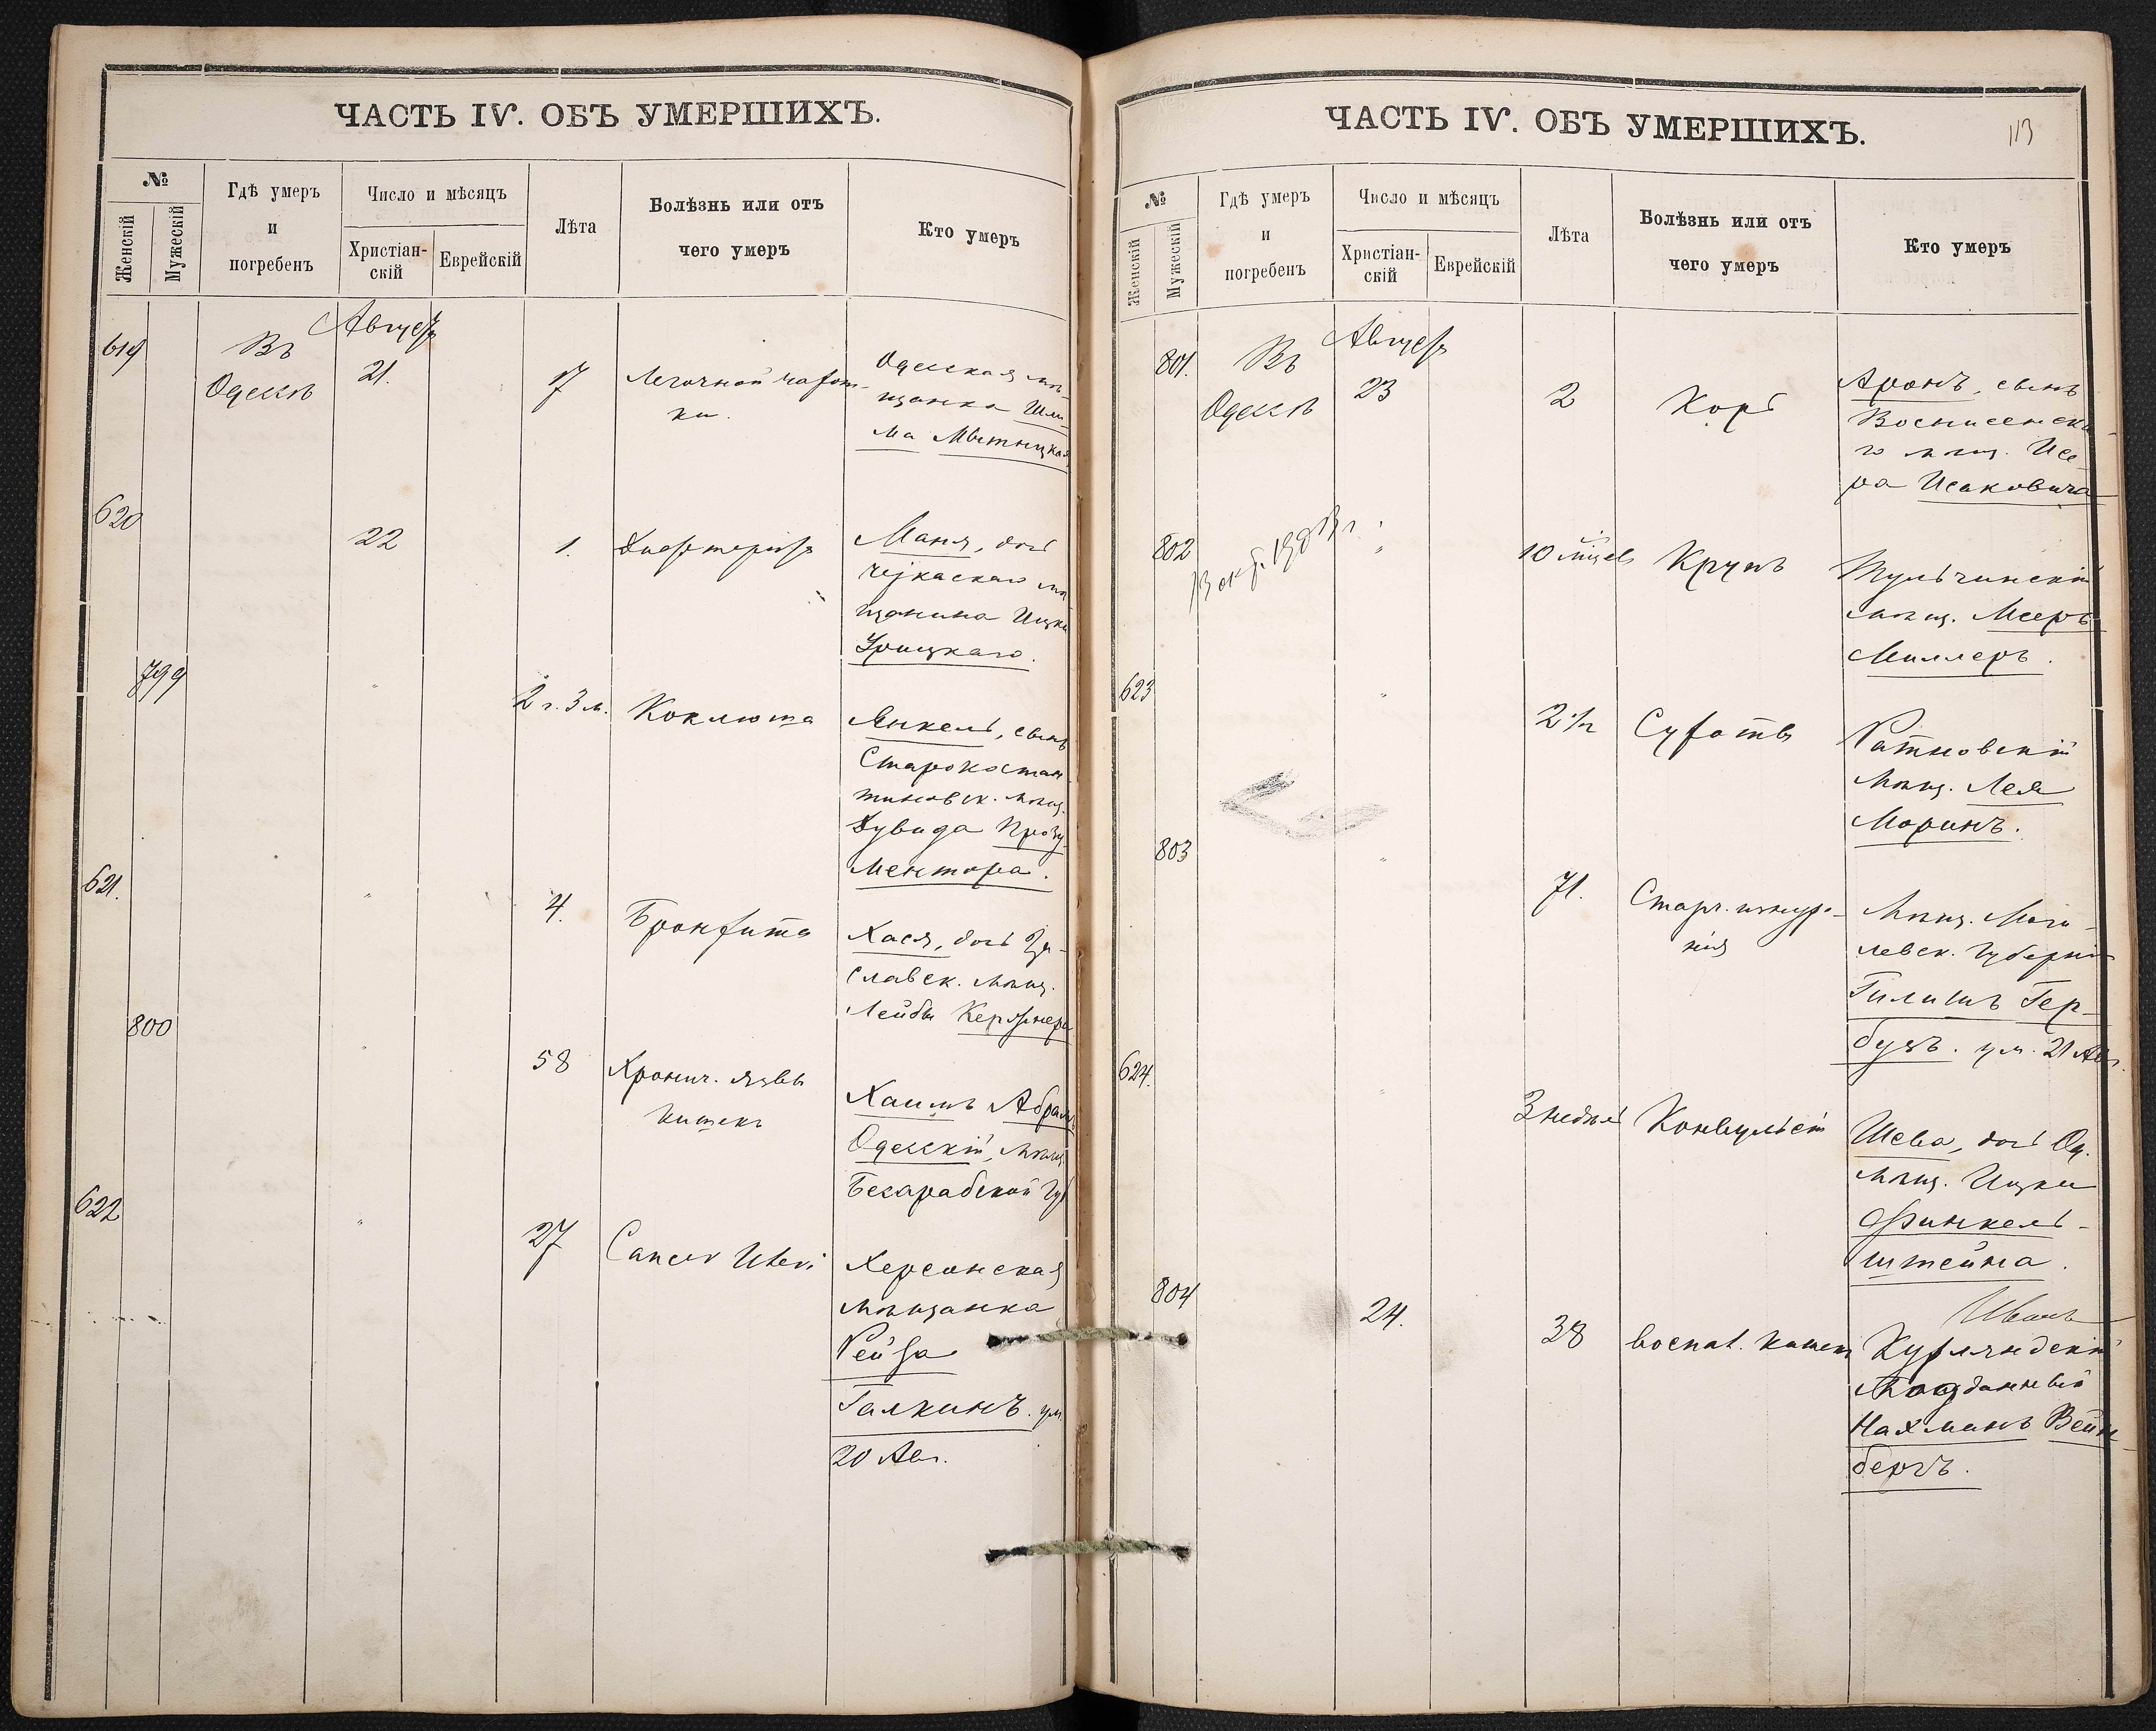 ЧАСТЬ IV. ОБЪ УМЕРШИХЪ.
№
Женскій
Мужескій
Гдѣ умеръ
и
погребенъ
Число и мѣсяцъ
Христіан-
скій
Еврейскій
Лѣта
Болѣзнь или отъ
чего умеръ
Кто умеръ
619
Въ
Одессѣ
Августъ
21.
17
Легочной чахот-
ки.
Одесская мѣ-
щанка
ма Мытницкая
620
22
1.
Маня, дочь
Черкаскаго мѣ-
щанина Ицки
Урицкаго.
799
"
2 г. 3 м.
Коклюша
Янкель, сынъ
Старокостан-
тиновск. мѣщ.
Дувида Прозу-
ментора.
621.
"
4.
Бронхита
Хася, дочь За-
славск. мѣщ.
Лейбы
800
"
58
Хронич. язвы
кишекъ
Хаимъ Абрамъ
Одесскій, мѣщ.
Бесарабской Губ
622
"
27
Cancer Uteri
Херсонская
мѣщанка
Рейза
Галкинъ. ум.
20 Авг.
ЧАСТЬ IV. ОБЪ УМЕРШИХЪ.
113
№
Женскій
Мужескій
Гдѣ умеръ
и
погребенъ
Число и мѣсяцъ
Христіан-
скій
Еврейскій
Лѣта
Болѣзнь или отъ
чего умеръ
Кто умеръ
801.
Въ
Одессѣ
Августъ
23
2
Корь
Аронъ, сынъ
Вознисенска-
го мѣщ. Исе-
ра Исаковича
802
"
10 мѣсяцевъ
Крупъ
Тульчинскій
мѣщ. Мееръ
Миллеръ.
623
"
2 1/2
Ратновскій
мѣщ. Лея
Моринъ.
803
"
71.
Старч. изнуре-
нія
Мѣщ. Моги-
левск. Губерніи
Гилишъ Гер-
буръ. ум. 21 Авг.
624.
"
3 недѣль
Конвульсій
Шева, дочь Од.
мѣщ. Ицки
Финкель-
штейна.
804
24.
38
воспал. кишекъ
Курляндскій
подданный
Нахманъ Вейн-
бергъ.